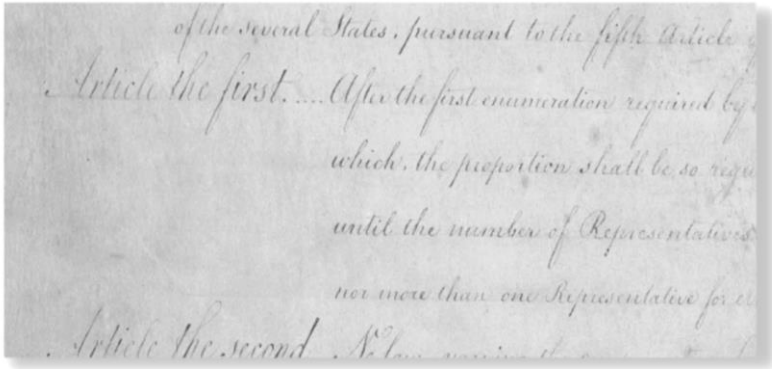 of the several States, pursuant to the fifth Article
Article the first..... After the first enumeration required by
which, the proportion shall be so regu
until the number of Representatives
nor more than one Representative for e
Article the second No law